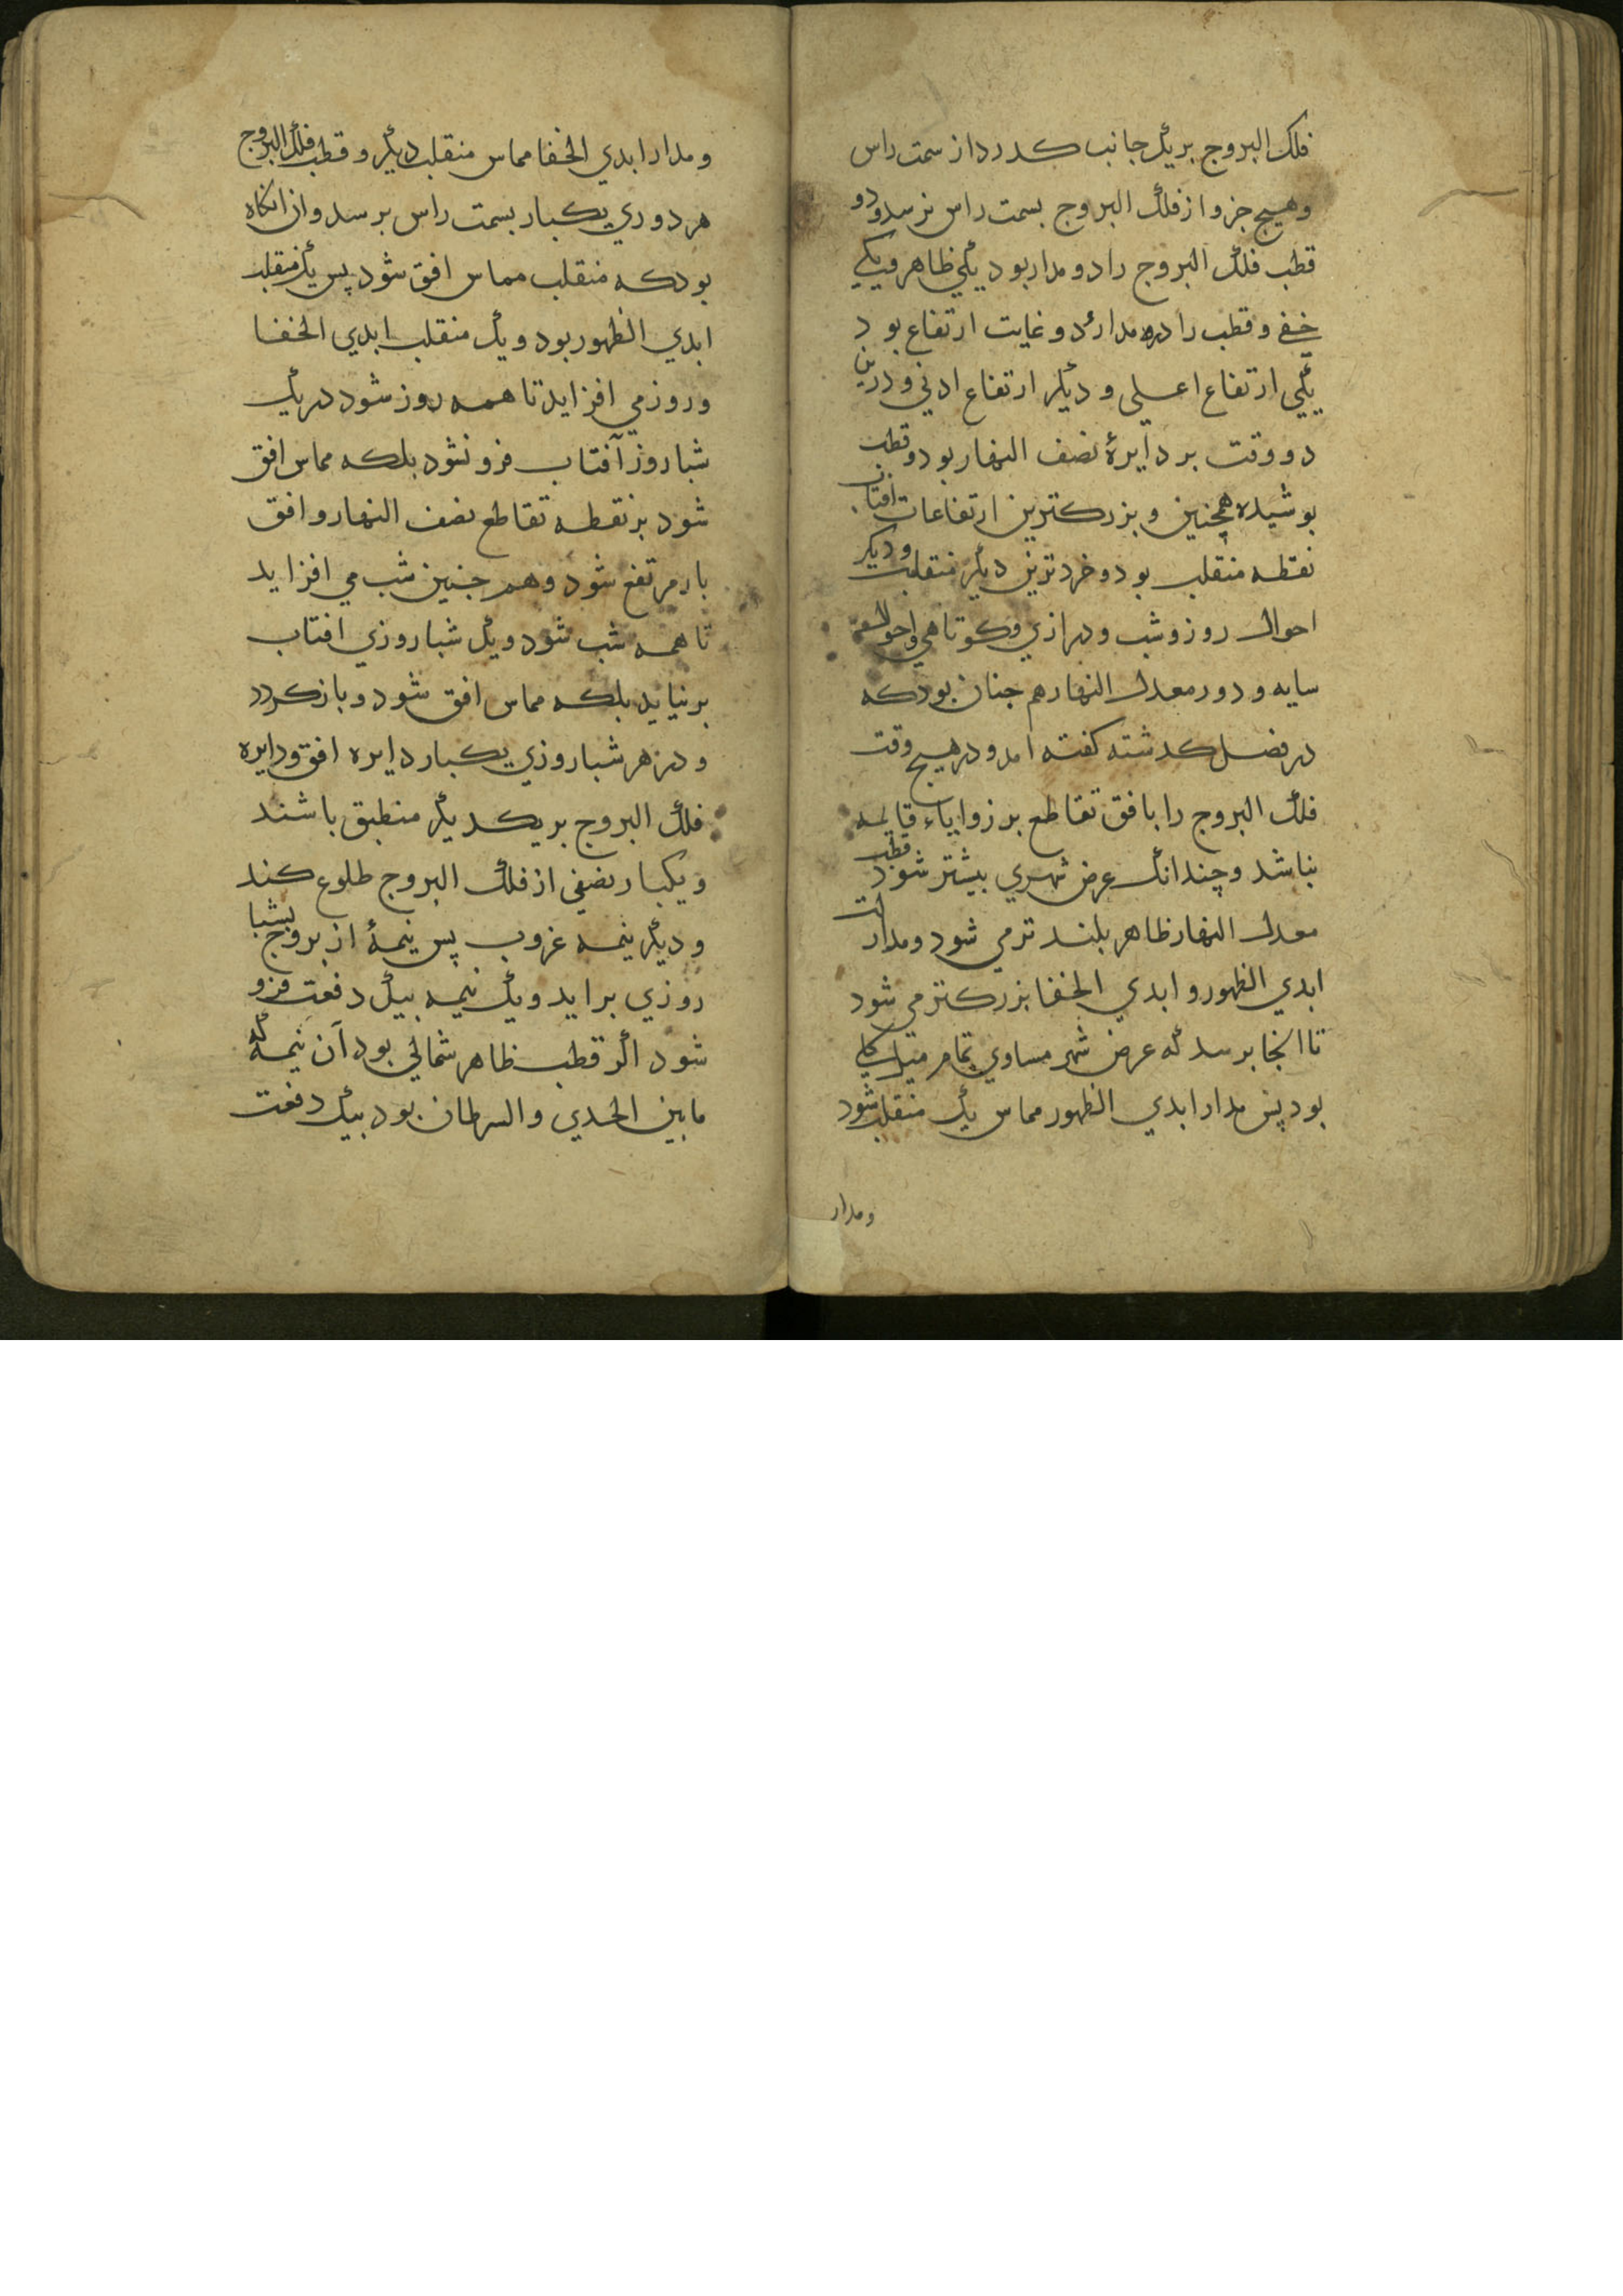 فلک البروج بریک جانب کدرد از سمت راس
وهیچ جزو از فلک البروج بسمت راس نرسد ودو
قطب فلک البروج را دو مدار بود یکی ظاهر ویکی
خفی وقطب را در مدار دو غایت ارتفاع بود
یکی ارتفاع اعلی و دیکر ارتفاع ادنی ودرین
دو وقت بر دایرهٔ نصف النهار بود وقطب
بوشیده همچنین و بزرکترین ارتفاعات افتاب
نقطه منقلب بود وخردترین دیکر منقلب ودیکر
احوال روز وشب ودرازی وکوتاهی واحوال
سایه و دور معدل النهار هم جنان بود که
در فصل کدشته کفته امد ودر هیچ وقت
فلک البروج را با افق تقاطع بر زوایاء قایمه
نباشد وچندانک عرض شهری بیشتر شود قطب
معدل النهار ظاهر بلند تر می شود ومدارات
ابدی الظهور و ابدی الخفا بزرکتر می شود
تا انجا برسد که عرض شهر مساوی تمام میل کلی
بود پس مدار ابدی الظهور مماس یک منقلب شود
ومدار
ومدار ابدی الخفا مماس منقلب دیکر وقطب فلک البروج
هر دوری یکبار بسمت راس برسد واز انکاه
بود که منقلب مماس افق شود پس یک منقلب
ابدی الظهور بود ویک منقلب ابدی الخفا
وروز می افزاید تا همه روز شود در یک
شباروز آفتاب فرو نشود بلکه مماس افق
شود بر نقطه تقاطع نصف النهار وافق
باز مرتفع شود وهم جنین شب می افزاید
تا همه شب شود ویک شباروزی افتاب
بر نیاید بلکه مماس افق شود وباز کردد
ودر هر شباروزی یکبار دایره افق ودایره
فلک البروج بر یکدیکر منطبق باشند
ویکبار نصفی از فلک البروج طلوع کند
ودیکر نیمه غروب پس نیمهٔ از بروج بشبا
روزی براید ویک نیمه بیک دفعت فرو
شود اکر قطب ظاهر شمالی بود آن نیمه که
مابین الجدی والسرطان بود بیک دفعت